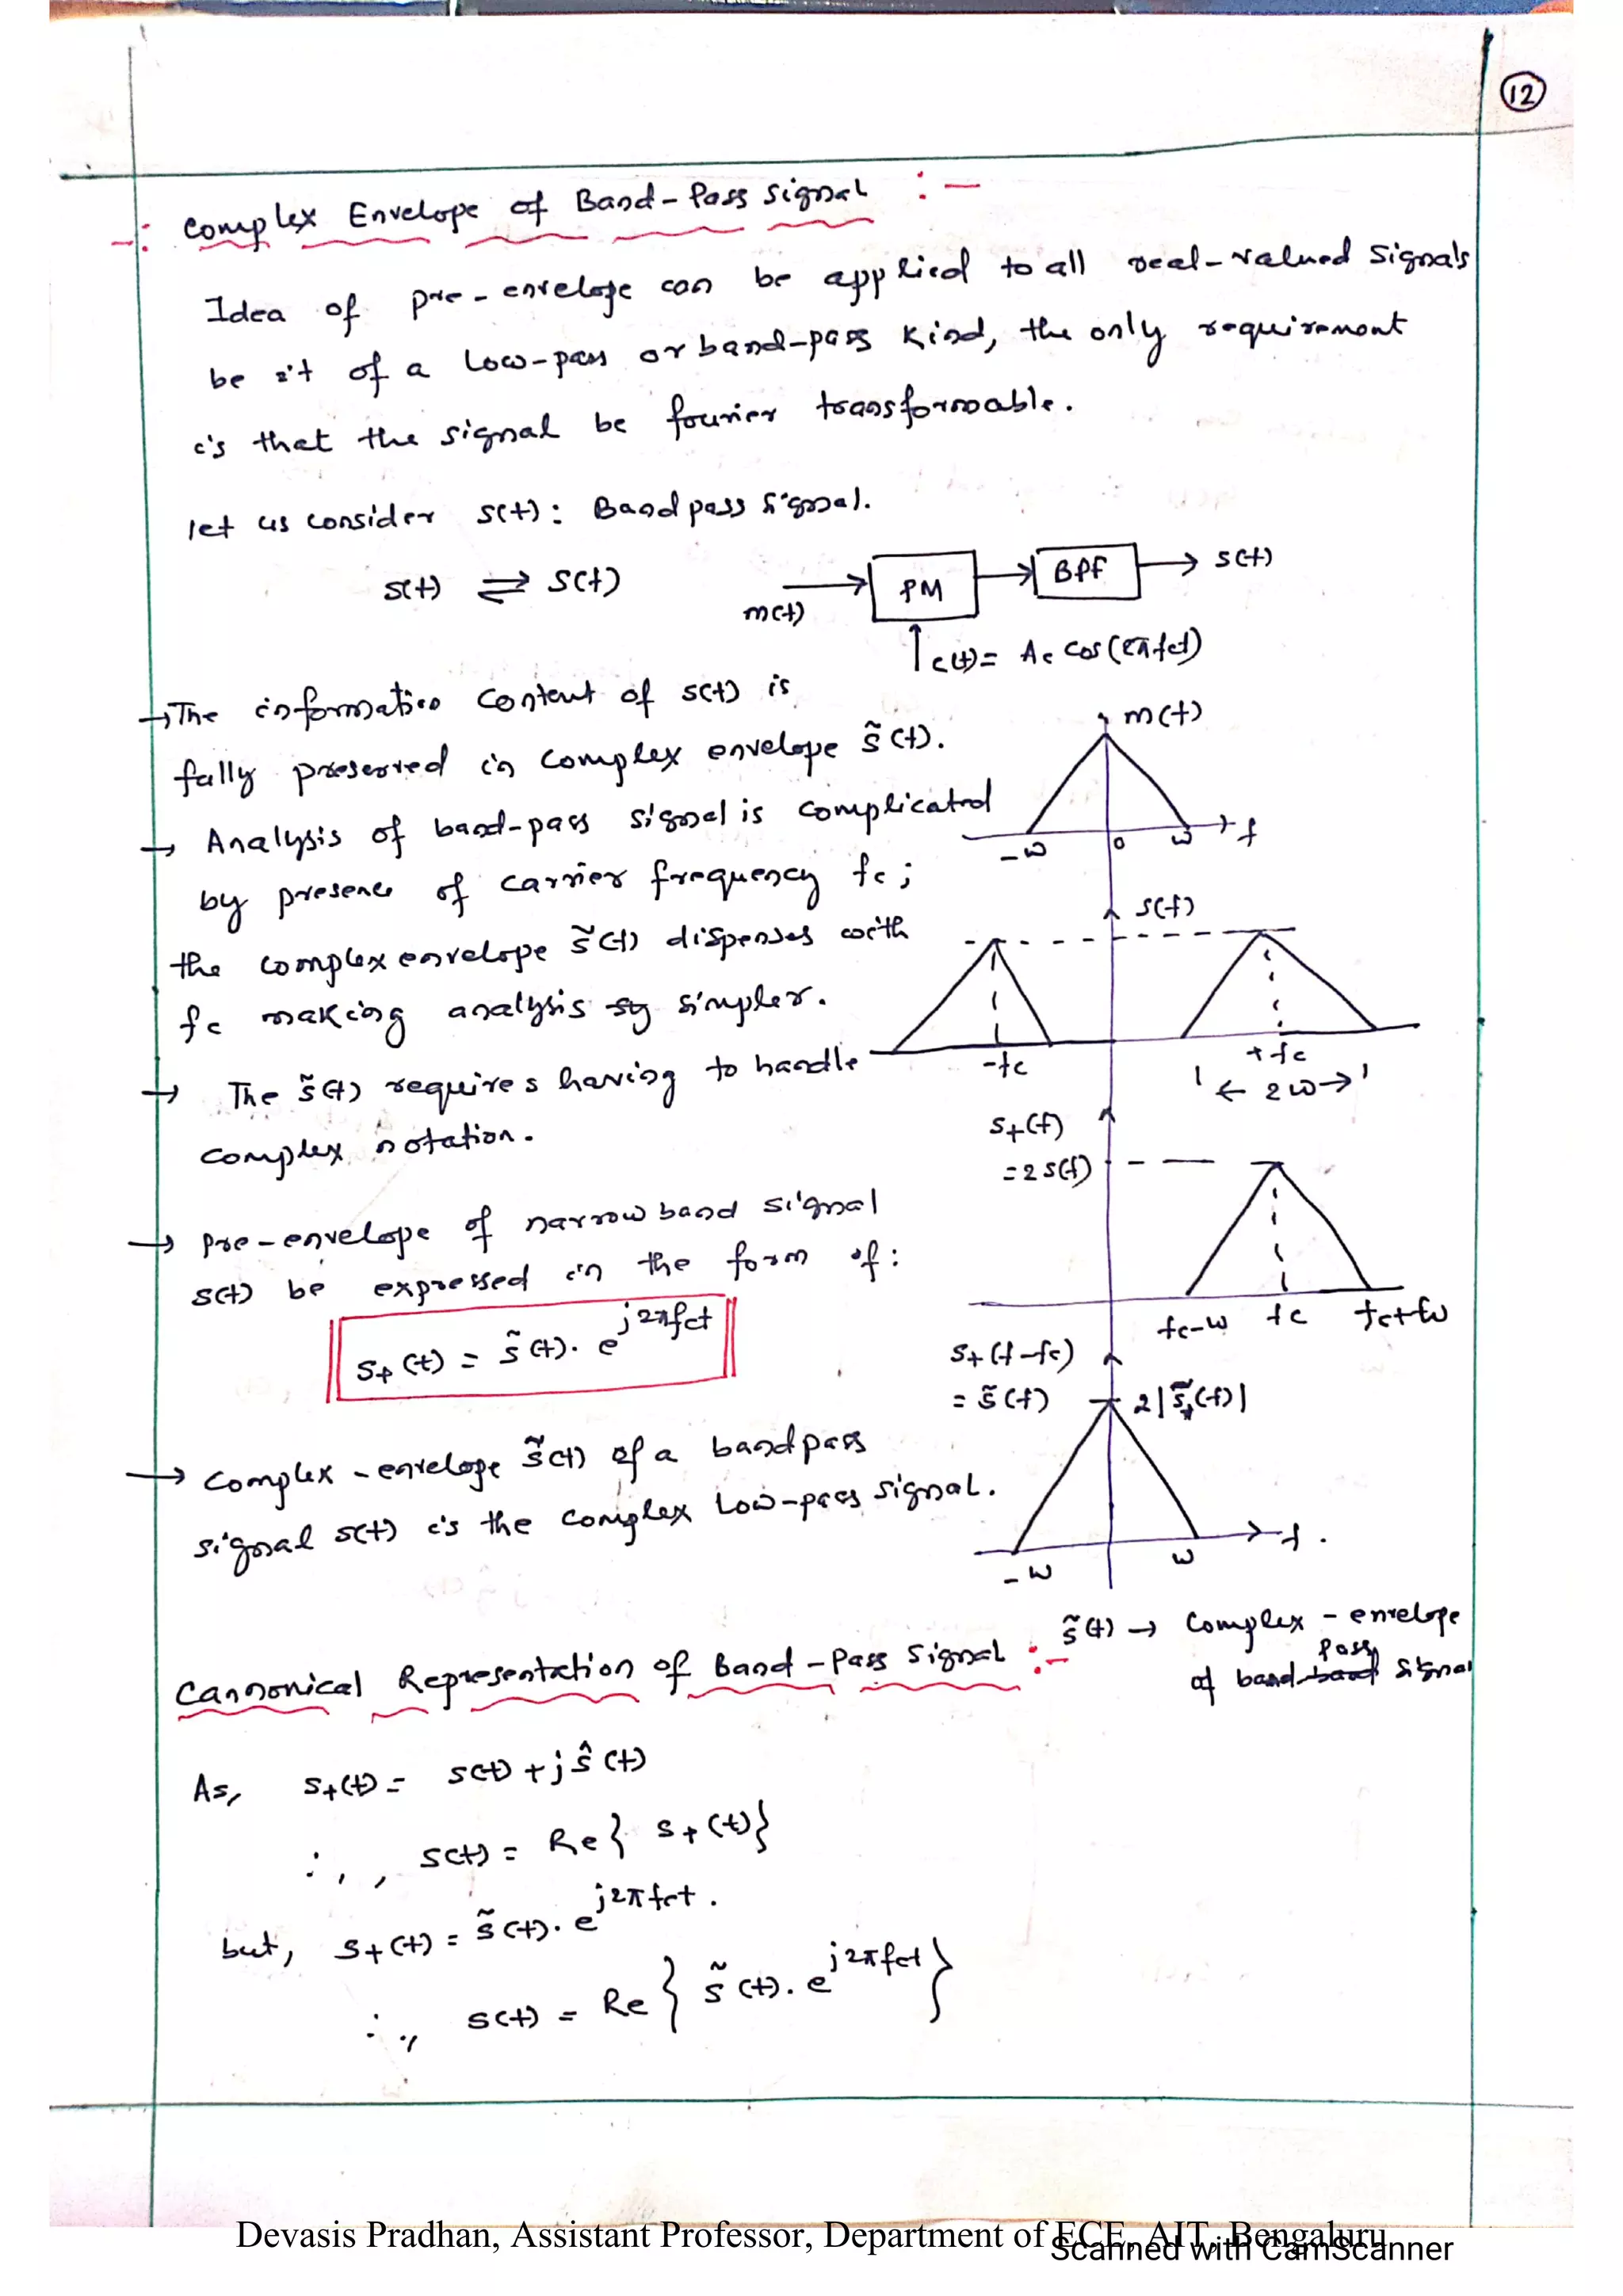 12
-: Complex Envelope of Band-Pass Signal :-
Idea of pre-envelope can be applied to all real-valued Signals
be it of a Low-pass or band-pass Kind, the only requirement
is that the signal be fourier transformable.
let us consider s(t): Bandpass Signal.
s(t) ⇌ S(f)
m(t)
PM
BPF
s(t)
c(t) = Ac Cos(2πfct)
→ The information Content of s(t) is
fully preserved in Complex envelope s̃(t).
→ Analysis of band-pass signal is complicated
by presence of carrier frequency fc;
the complex envelope s̃(t) dispenses with
fc making analysis simpler.
→ The s̃(t) requires having to handle
complex notation.
→ Pre-envelope of narrow band signal
s(t) be expressed in the form of:
s+(t) = s̃(t). e^j2πfct
→ Complex-envelope s̃(t) of a bandpass
signal s(t) is the complex Low-pass signal.
m(f)
-w 0 w f
s(f)
-fc +fc
← 2w →
s+(f)
= 2s(f)
fc-w fc fc+w
s+(f-fc)
= s̃(f) 2|s̃+(f)|
-w w f.
s̃(t) → Complex-envelope
of band-pass signal
Cannonical Representation of Band-Pass Signal :-
As, s+(t) = s(t) + jŝ(t)
∴, s(t) = Re{ s+(t)}
but, s+(t) = s̃(t). e^j2πfct.
∴, s(t) = Re { s̃(t). e^j2πfct }
Devasis Pradhan, Assistant Professor, Department of ECE, AIT, Bengaluru
Scanned with CamScanner